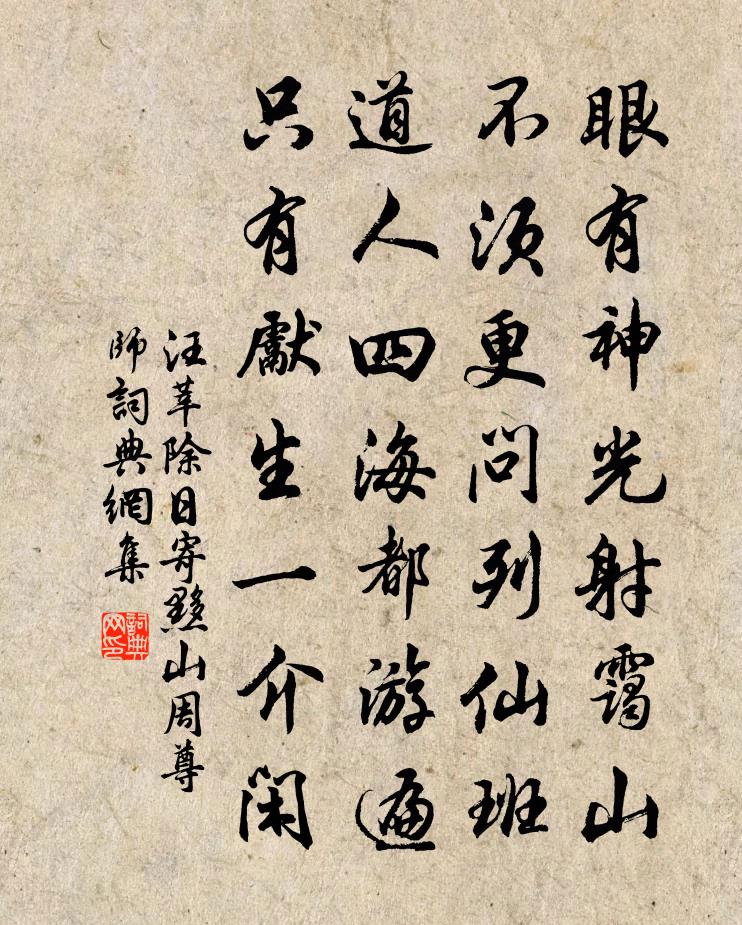 眼有神光射靄山
不須更問列仙班
道人四海都游遍
只有獻生一介闲
汪莘除日寄黟山周尊
師詞典網集
詞典
网印